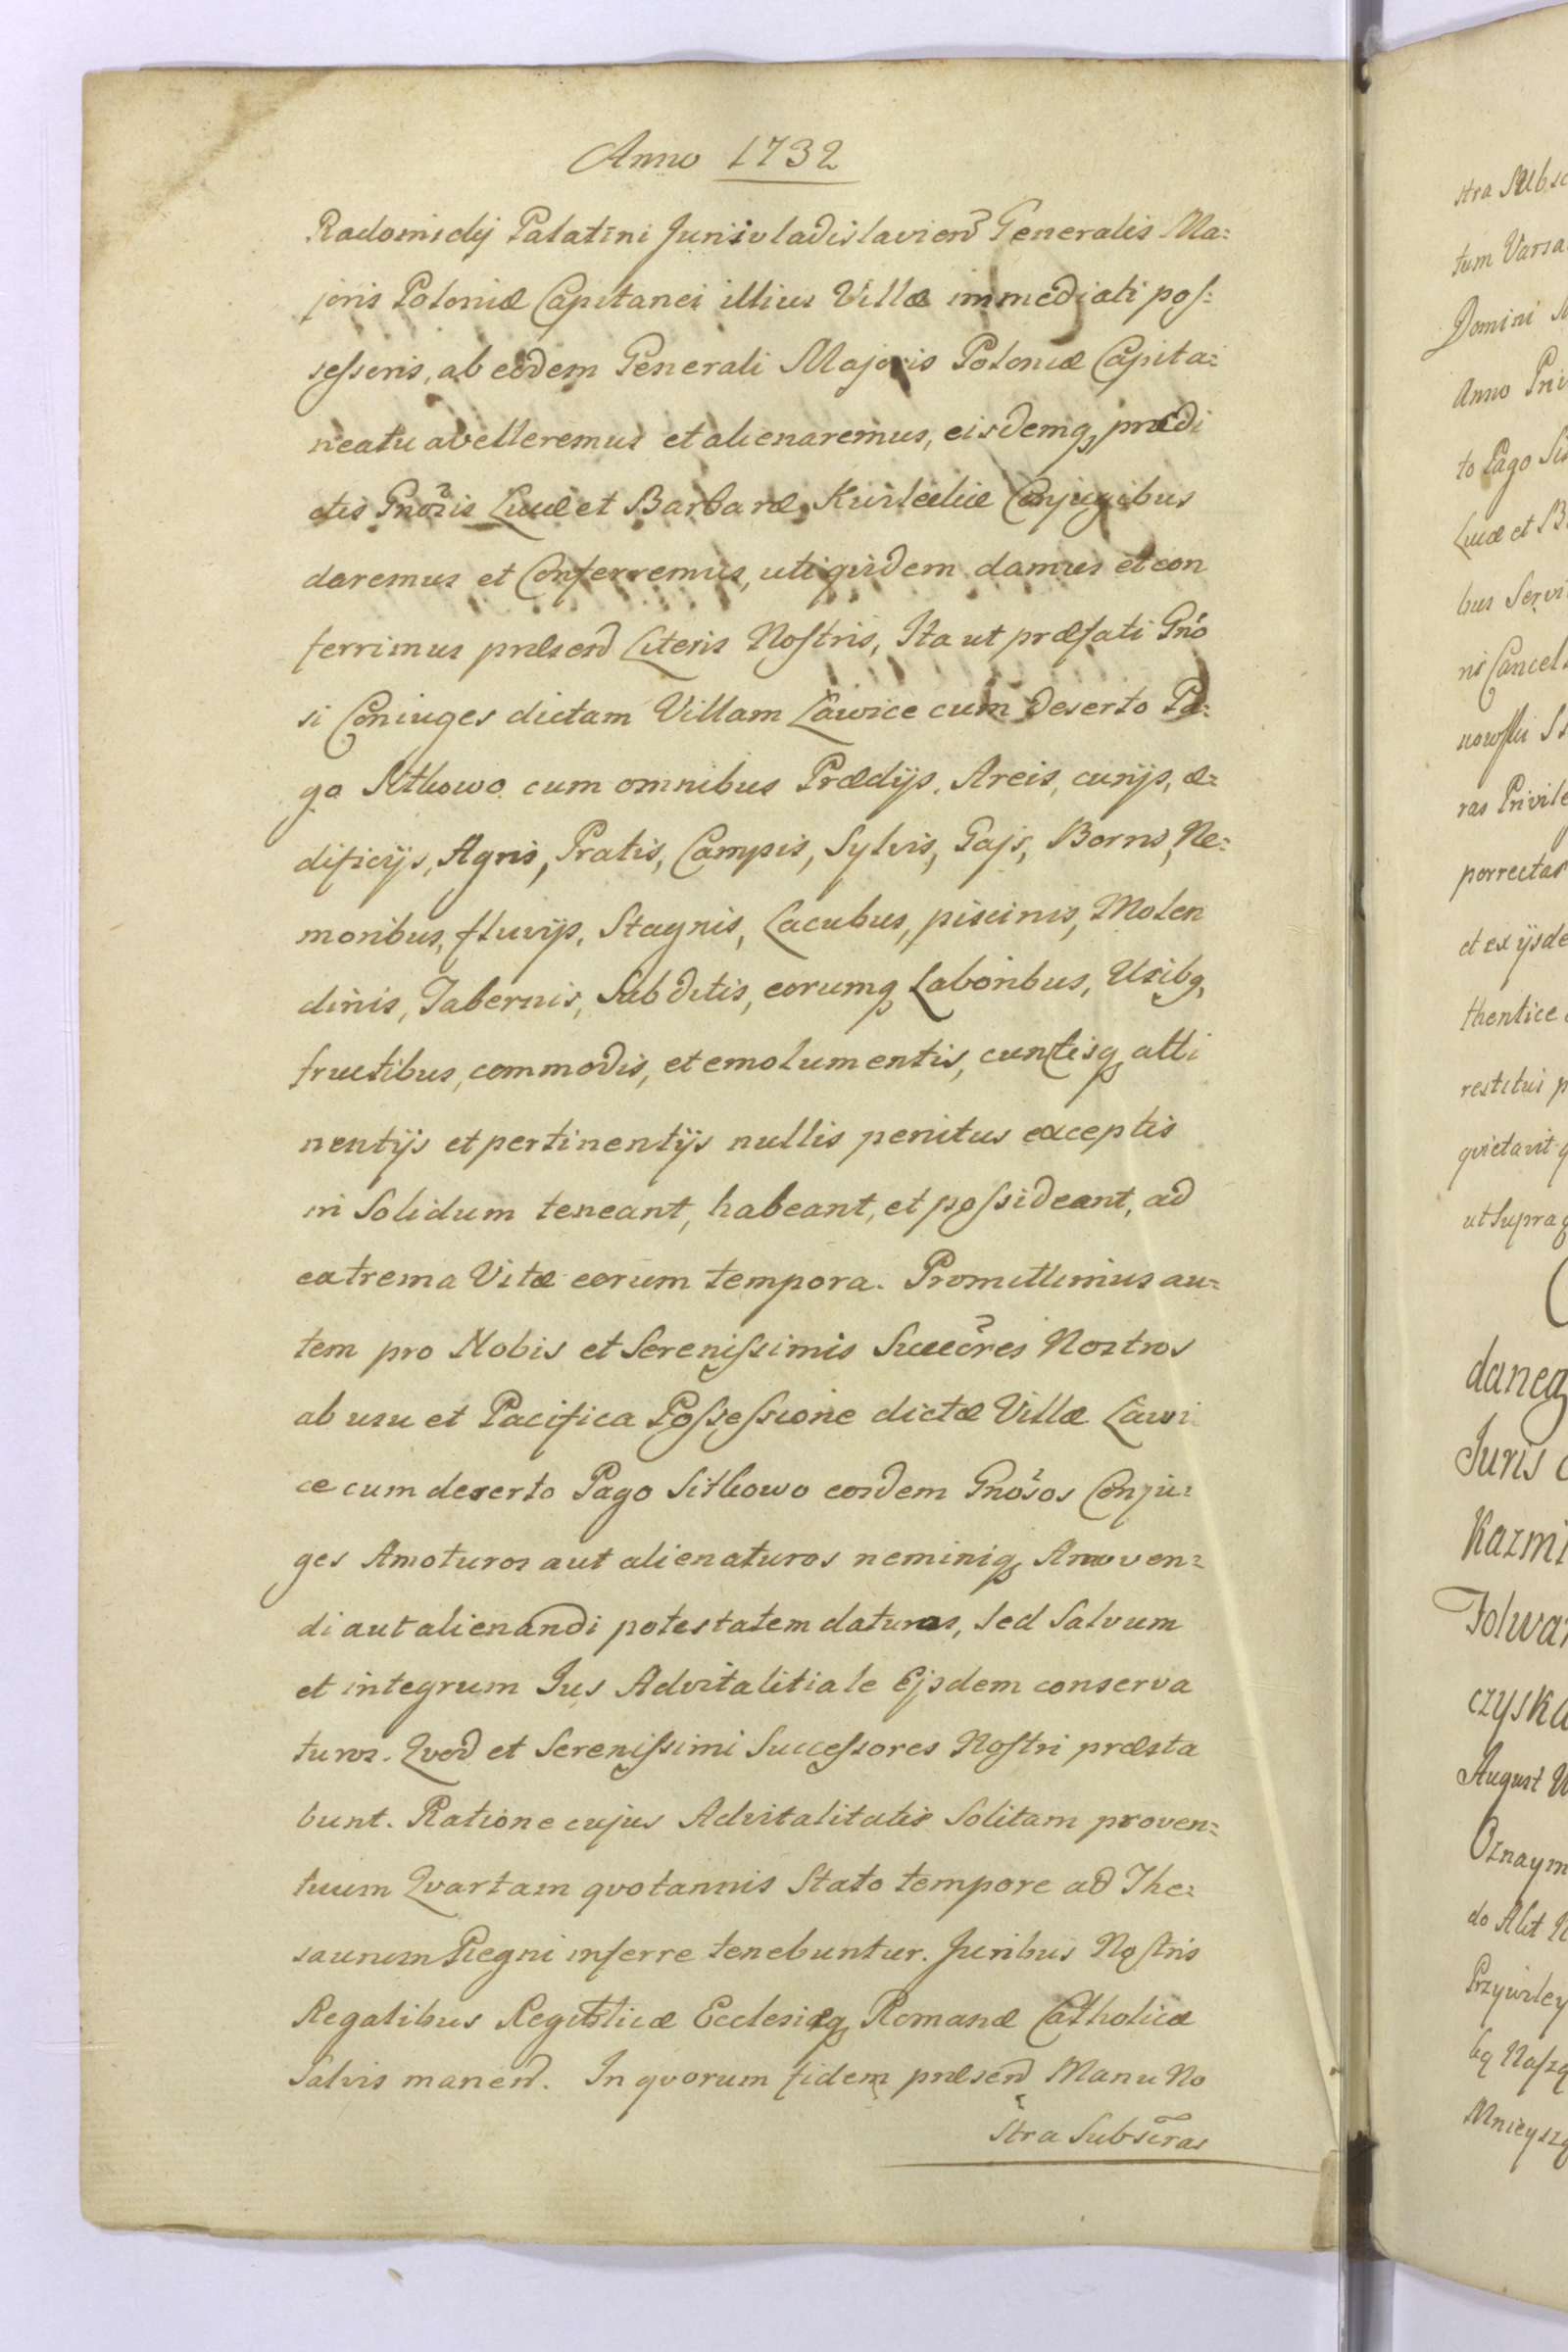 Anno 1732
Radomicky Palatini Juniuladislavien Generalis Ma:
joris Poloniæ Capitanei illius Villæ immediati pos:
sessoris, ab eodem Generali Majoris Poloniæ Capita:
neatu avelleremus et alienaremus, eisdemq prædi
ctis Gnosis Lucæ et Barbaræ Conjugibus
daremus et Conferremus, uti quidem damus et con
ferrimus præsend Literis Nostris, Ita ut præfati Gno
si Coniuges dictam Villam Ławice cum Deserto Pa:
go Sitkowo cum omnibus Prædijs, Areis, curijs, æ:
dificijs, Agris, Pratis, Campis, Sylvis, Gajs, Borris, Ne:
moribus, fluvijs, Stagnis, Lacubus, piscinis, Molen
dinis, Tabernis, Subditis, eorumq Laboribus, Usibq,
fructibus, commodis, et emolumentis, cunctisq atti
nentijs et pertinentijs nullis penitus exceptis
in Solidum teneant, habeant, et possideant, ad
extrema Vitæ eorum tempora. Promittimus au:
tem pro Nobis et Serenissimis Succeores Nostros
ab usu et Pacifica Possessione dictæ Villæ Ławi
ce cum deserto Pago Sitkowo eosdem Gnosos Conju:
ges Amoturos aut alienaturos neminiq Amoven:
di aut alienandi potestatem daturos, sed Salvum
et integrum Jus Advitalitiale Ejsdem conserva
turos. Qvod et Serenissimi Successores Nostri præsta
bunt. Ratione cujus Advitalitatis Solitam proven:
tuum Qvartam qvotannis Stato tempore ad The:
saurum Regni inferre tenebuntur. Juribus Nostris
Regalibus Ecclesiæq Romanæ Catholicæ
Salvis manend. In qvorum fidem præsend Manu No
stra Subscras
stra Subsc
tum Varsa
Domini
Anno Pri
to Pago Si
Lucæ et B
bus Servi
ris Cancel
nowski S
ras Privile
porrectas
et ex ijsde
thentice
restitui p
qvietavit q
ut Supra q
daneg
Juris
Kazmi
Folwar
czyska
August
Oznaym
do Akt
Przywiley
Mnieysz